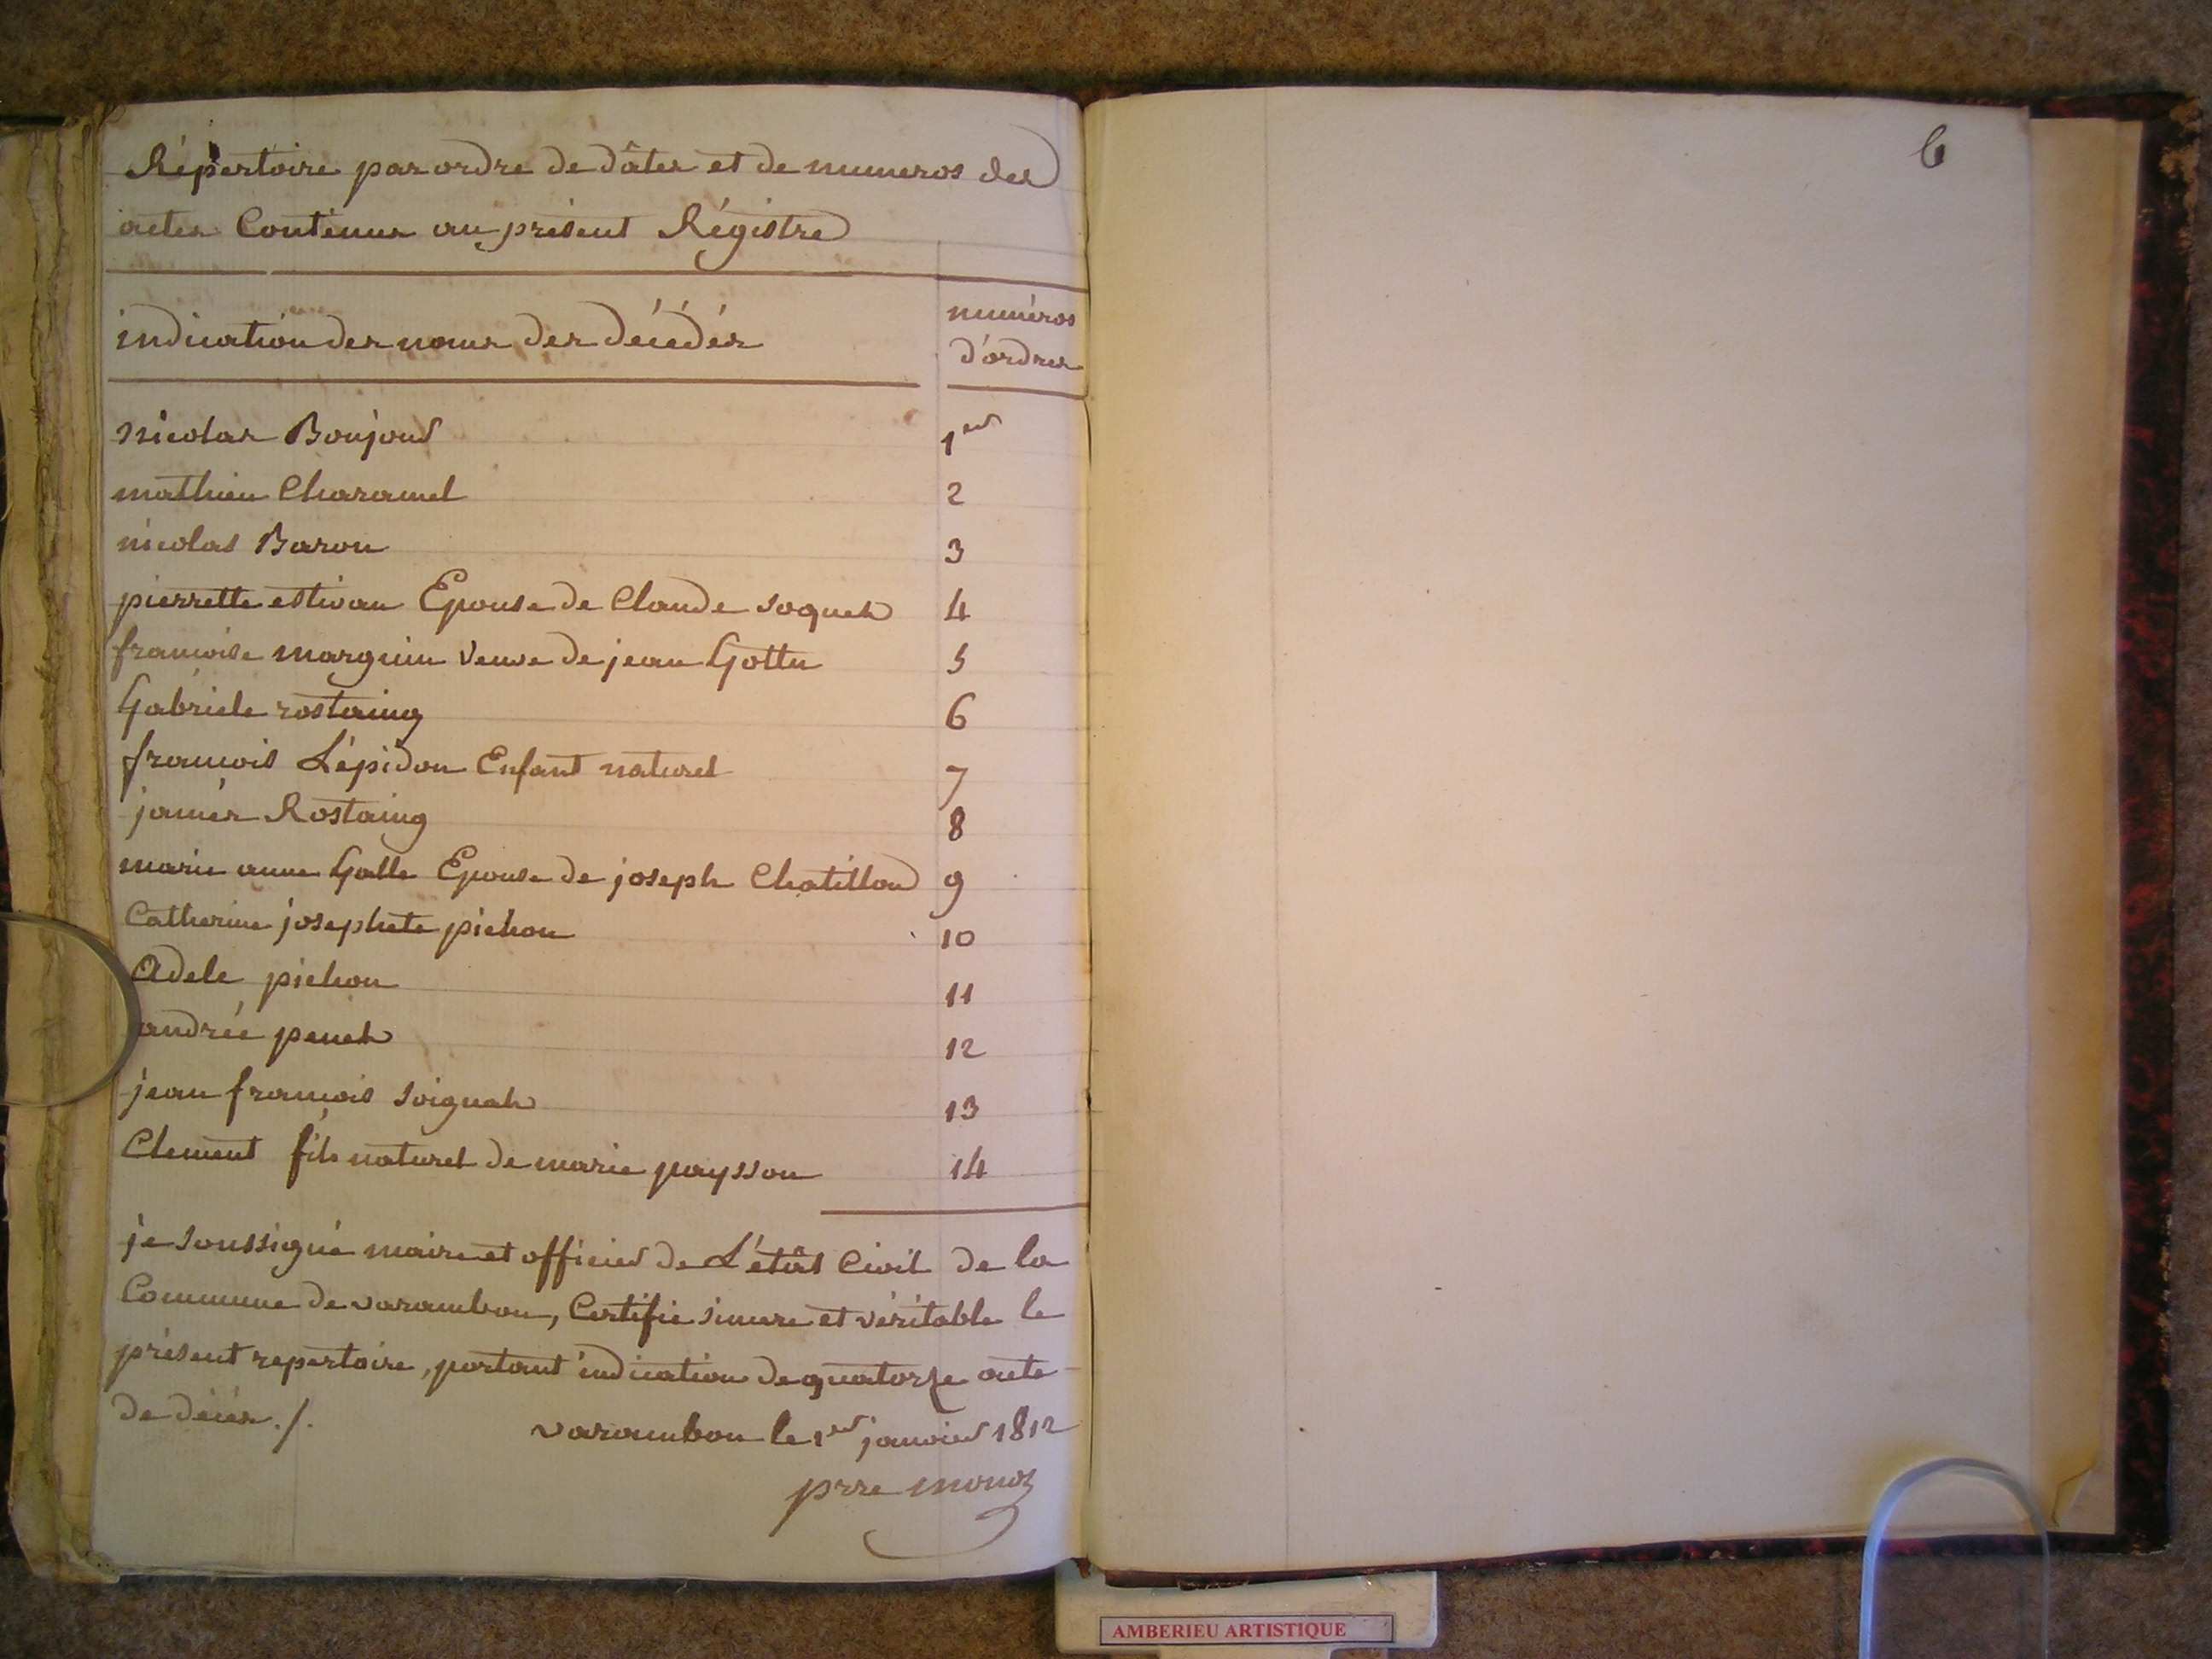 Répertoire par ordre de dâtes et de numeros des
actes Contenus au présent Régistre
indication des noms des décédés
numéros
d'ordres
nicolas Boujour
1er
mathieu Charamel
2
nicolas Baron
3
pierrette estivan Epouse de Claude soquet
4
francoise marguin veuve de jean Gottu
5
Gabriele rostaing
6
francois Lépidon Enfant naturel
7
Rostaing
8
marie anne Galle Epouse de joseph Chatillon
9
Catherine josephete pichon
10
Adele pichon
11
andrée penet
12
jean francois soignat
13
Clement fils naturel de marie paysson
14
je soussigné maire et officier de L'étât Civil de la
Commune de varambon, Certifie sincere et véritable le
présent repertoire, portant indication de quatorze acte
de décés ./.
varambon le 1er janvier 1812
prre monoz
6
AMBERIEU ARTISTIQUE